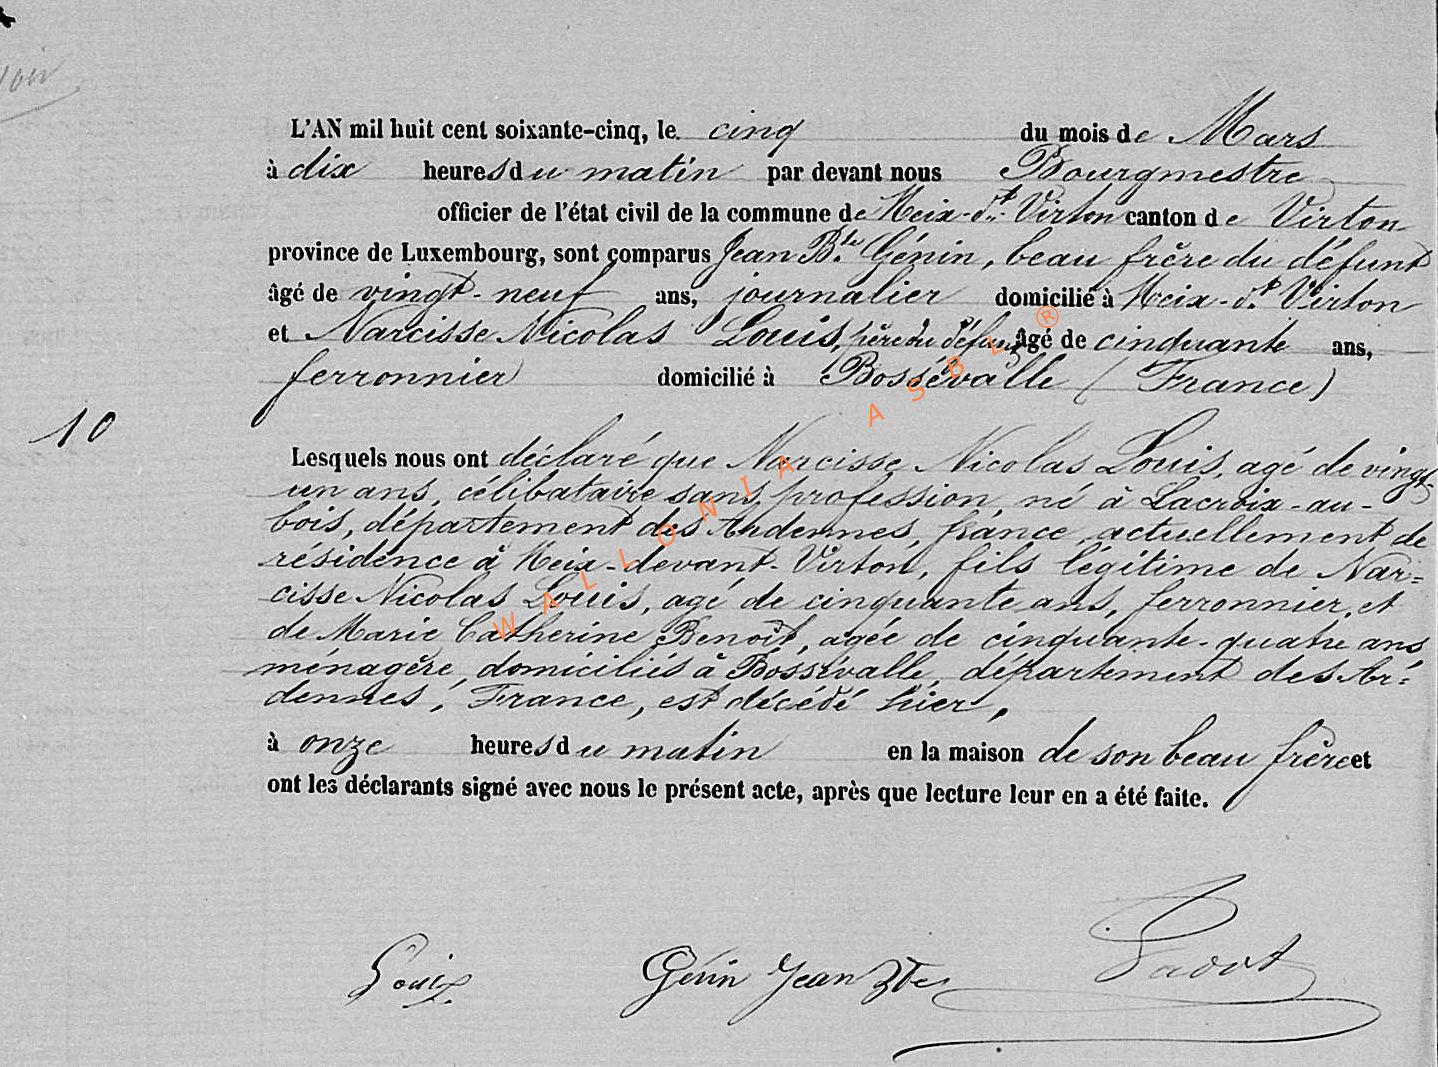 L'AN mil huit cent soixante-cinq, le cinq du mois de Mars
à dix heures du matin par devant nous Bourgmestre
officier de l'état civil de la commune de Meix-dt-Virton canton de Virton
province de Luxembourg, sont comparus Jean Bte Génin, beau frère du défunt
âgé de vingt-neuf ans, journalier domicilié à Meix-dt Virton
et Narcisse Nicolas Louis, père du défunt âgé de cinquante ans,
ferronnier domicilié à Bossévalle (France)
10
Lesquels nous ont déclaré que Narcisse Nicolas Louis, agé de vingt-
un ans, célibataire sans profession, né à Lacroix-au-
bois, département des Ardennes, france, actuellement de
résidence à Meix-devant-Virton, fils légitime de Nar=
cisse Nicolas Louis, agé de cinquante ans, ferronnier, et
de Marie Catherine Benoît, agée de cinquante-quatre ans
ménagère, domiciliés à Bossévalle, département des Ar=
dennes, France, est décédé hier,
à onze heures du matin en la maison de son beau frère et
ont les déclarants signé avec nous le présent acte, après que lecture leur en a été faite.
WALLONIA ASBL ®
Louis Génin Jean Bte